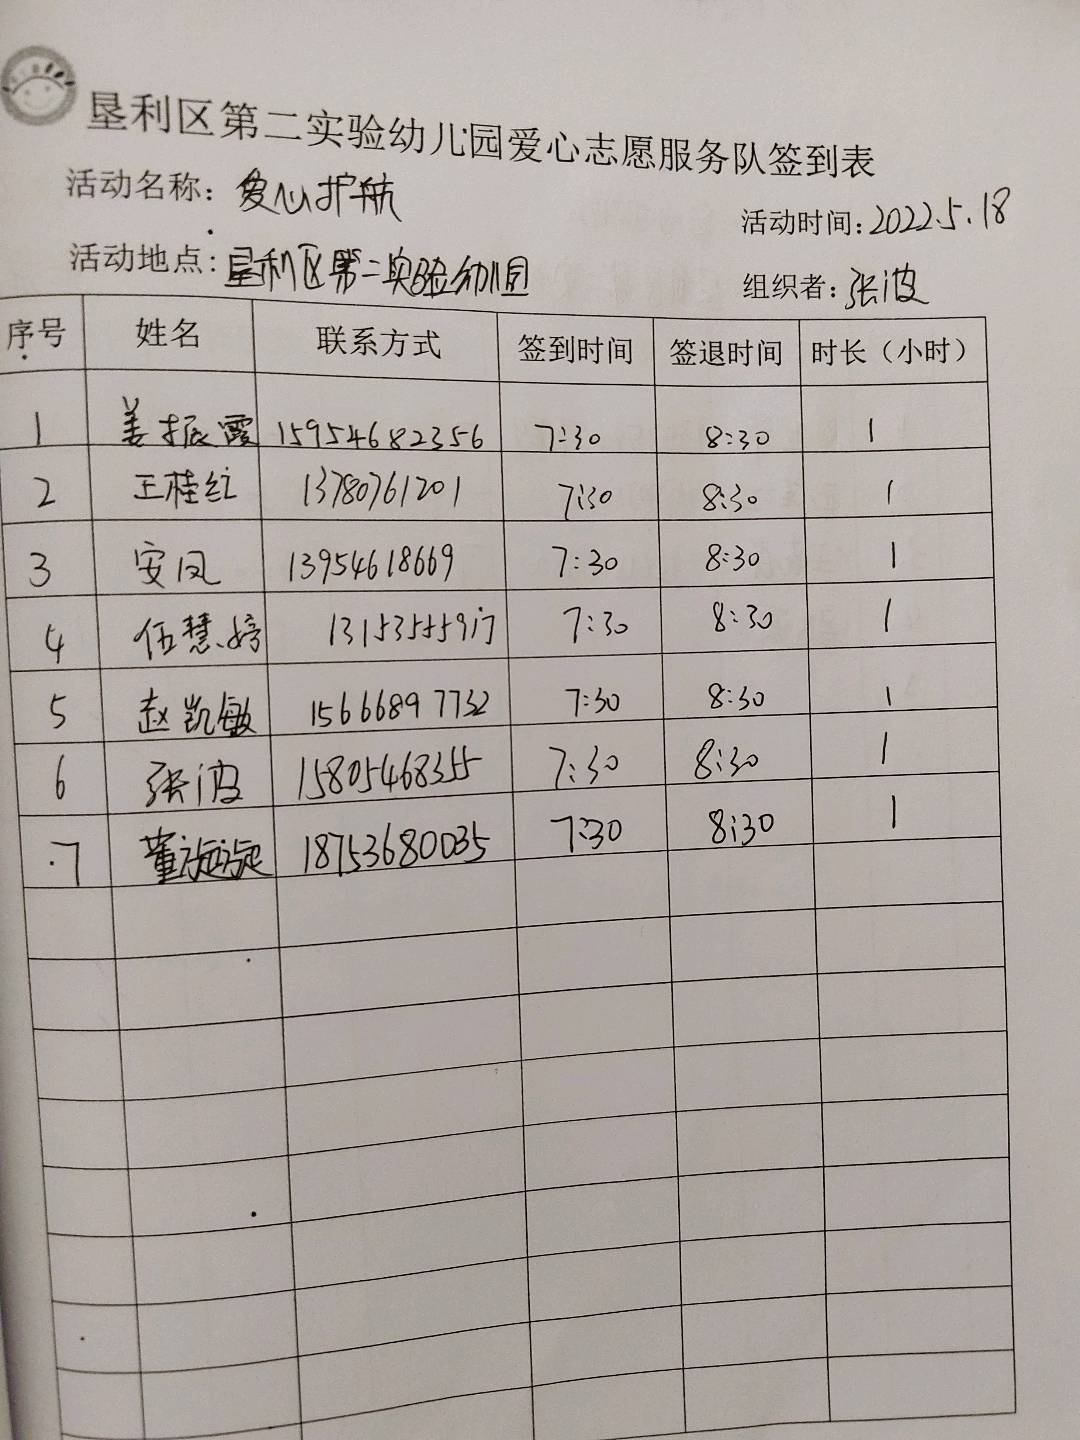 垦利区第二实验幼儿园爱心志愿服务队签到表
活动名称：爱心护航
活动时间：2022.5.18
活动地点：垦利区第二实验幼儿园
组织者：张波
序号 姓名 联系方式 签到时间 签退时间 时长（小时）
1 姜振霞 15954682356 7:30 8:30 1
2 王桂红 13780761201 7:30 8:30 1
3 安凤 13954618669 7:30 8:30 1
4 伍慧婷 7:30 8:30 1
5 赵凯敏 15666897732 7:30 8:30 1
6 张波 15805468355 7:30 8:30 1
7 董漩漩 18753680035 7:30 8:30 1